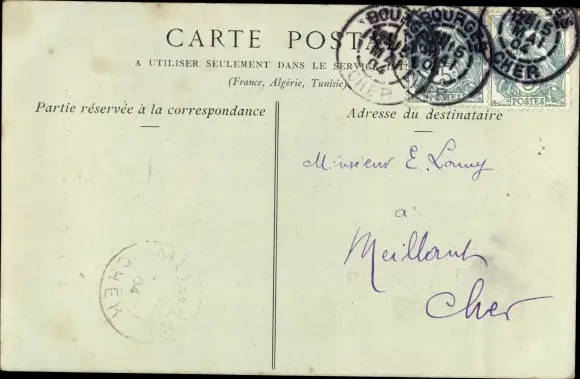 CARTE POST
A UTILISER SEULEMENT DANS LE SERVIC
(France, Algérie, Tunisie)
Partie réservée à la correspondance
Adresse du destinataire
BOURGES
CHER
04
POSTES
BOURGES
CHER
04
POSTES
Monsieur E. Lamy
à
Meillant
Cher
CHER
04